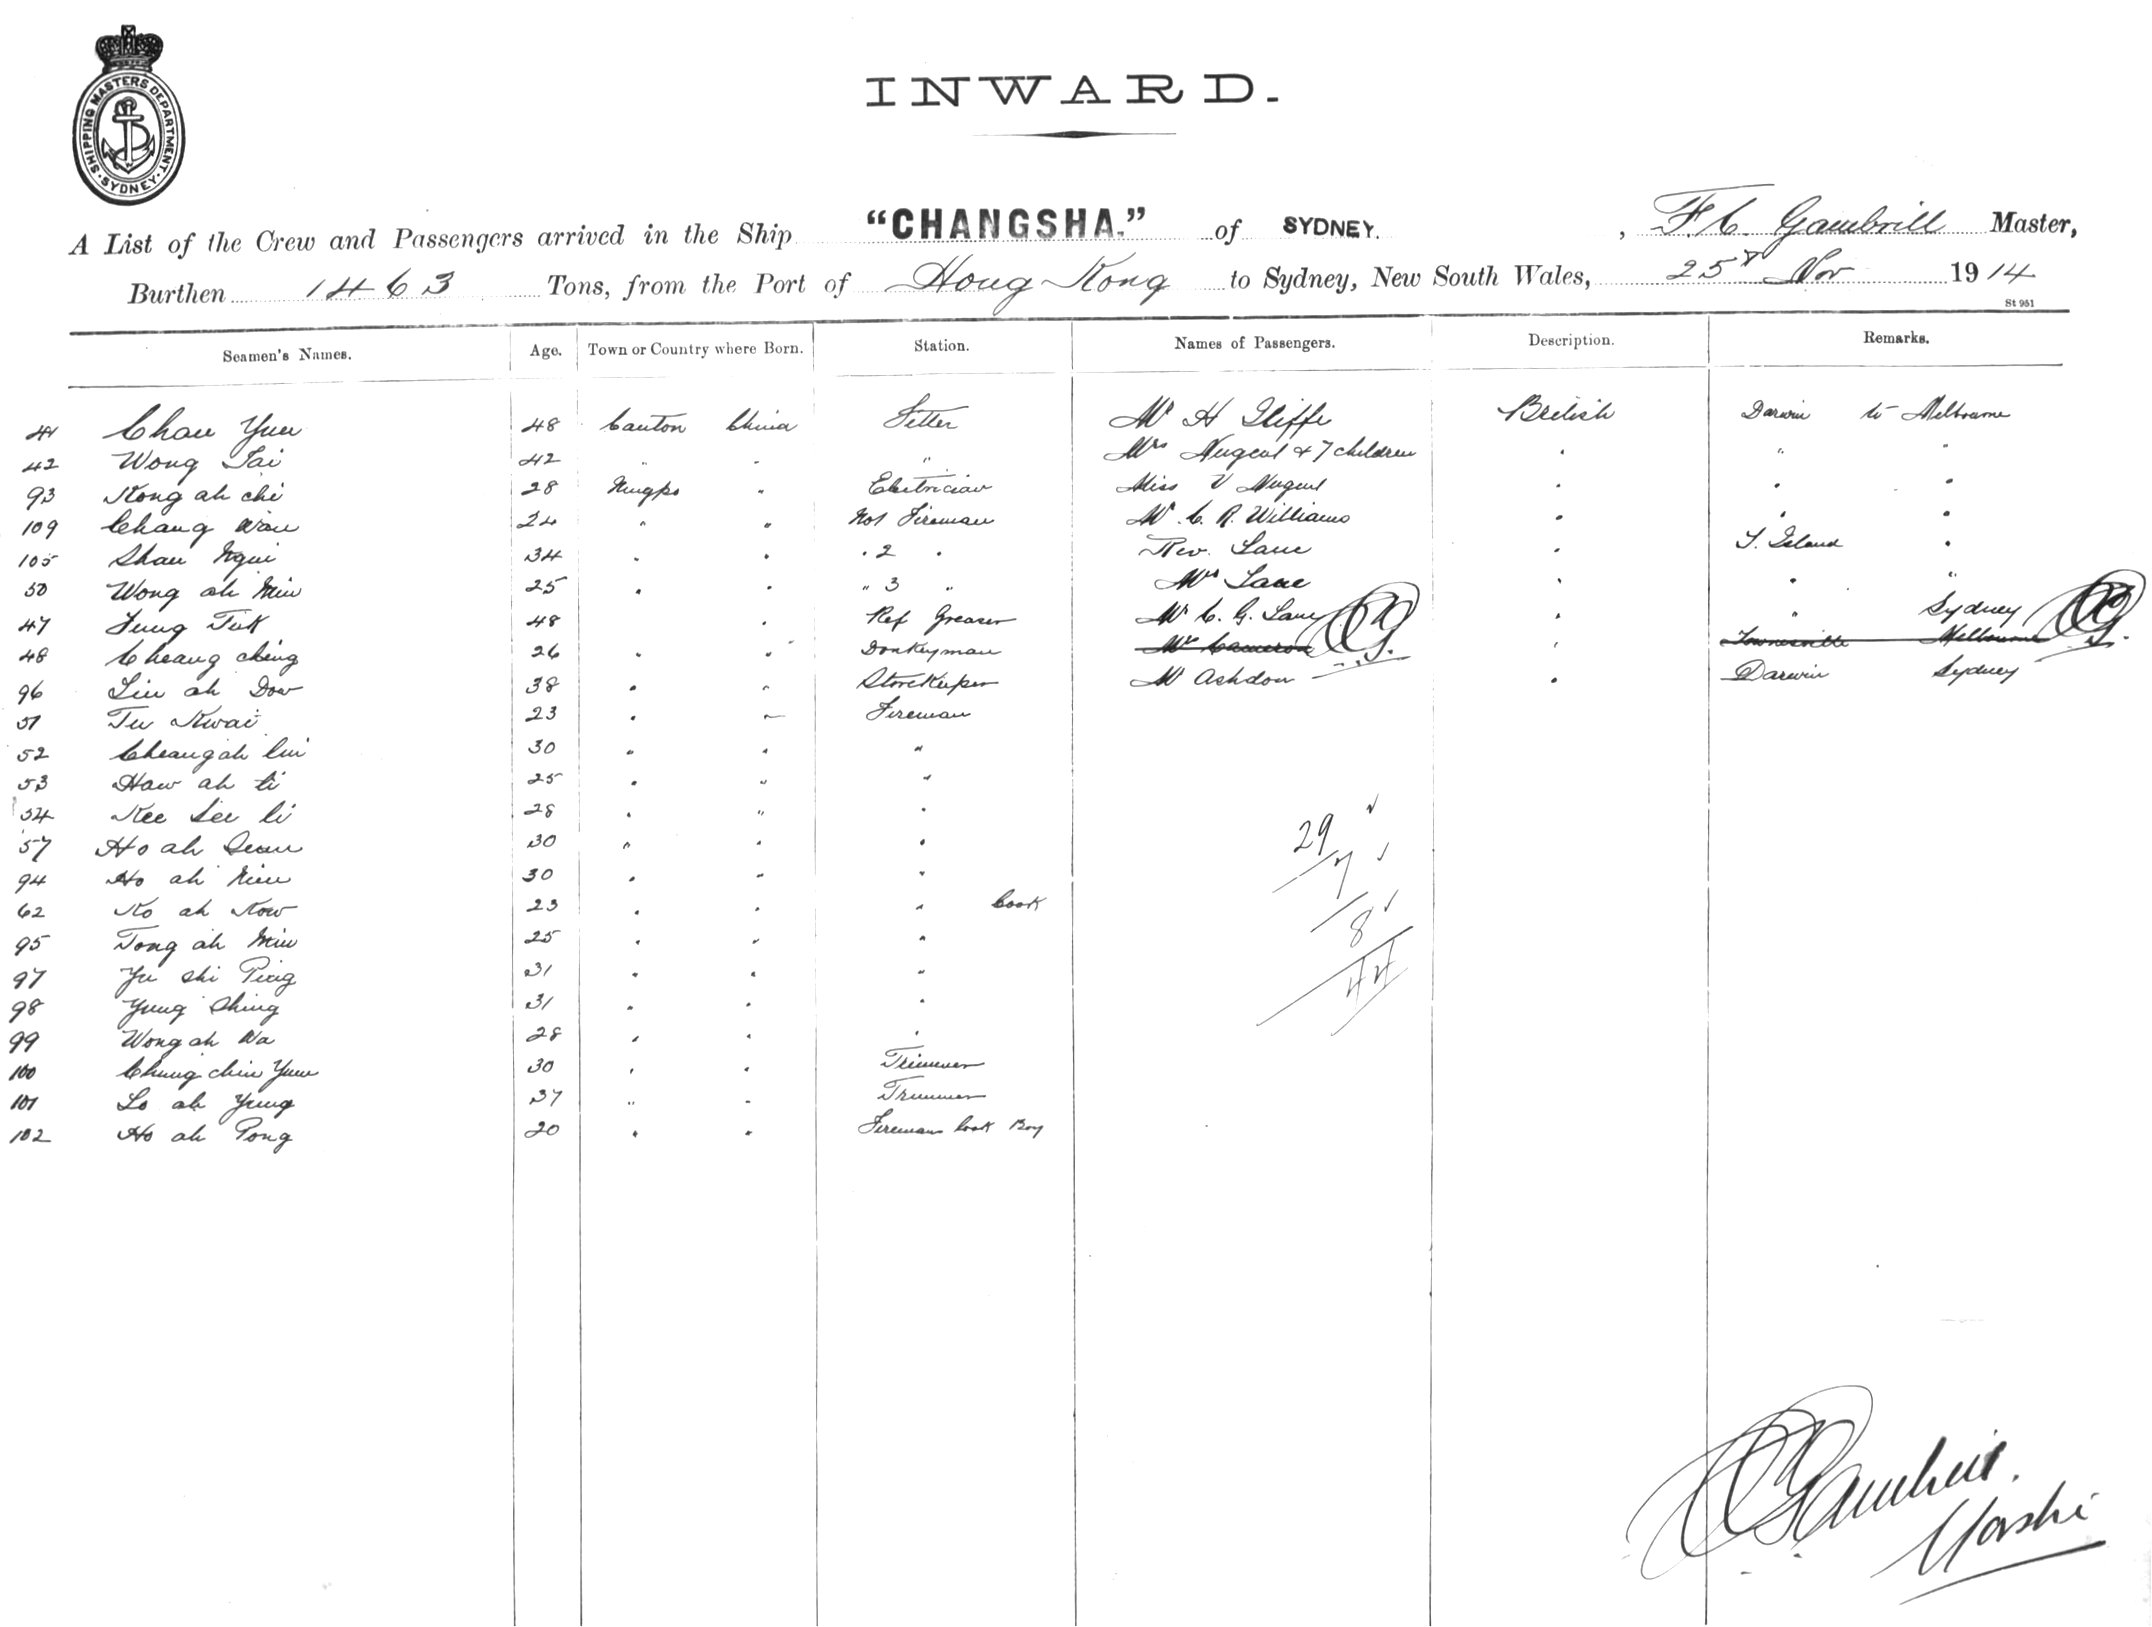 SHIPPING MASTERS DEPARTMENT · SYDNEY ·
INWARD.
A List of the Crew and Passengers arrived in the Ship "CHANGSHA." of SYDNEY. , F. C. Gambrill Master,
Burthen 1463 Tons, from the Port of Hong Kong to Sydney, New South Wales, 25th Nov 1914
St 951
Seamen's Names. Age. Town or Country where Born. Station. Names of Passengers. Description. Remarks.
41 Chau Yuen 48 Canton China Fitter Mr H Iliffe British Darwin to Melbourne
42 Wong Tai 42 " " " Mrs Nugent & 7 children " " "
93 Kong ah chi 28 Ningpo " Electrician Miss V Nugent " " "
109 Chang Wan 24 " " No1 Fireman Mr C. R. Williams " " "
105 Shau Ngui 34 " " " 2 " Rev. Lane " T. Island "
50 Wong ah Min 25 " " " 3 " Mrs Lane " " "
47 Fung Tuk 48 " Ref Greaser Mr C. G. Lane " " Sydney
48 Cheang ching 26 " " Donkeyman Mr Cameron " Townsville Melbourne
96 Liu ah Dow 38 " " Storekeeper Mr Ashdon " Darwin Sydney
51 Tu Kwai 23 " " Fireman
52 Cheang ah Lin 30 " " "
53 Haw ah ti 25 " " "
54 Kee See li 28 " " "
57 Ho ah 30 " " "
94 Ho ah 30 " " "
62 Ko ah Kow 23 " " " Cook
95 Tong ah Min 25 " " "
97 Yu Shi Ping 31 " " "
98 Yung Shing 31 " " "
99 Wong ah Wa 28 " " "
100 Chung chin Yuen 30 " " Trimmer
101 Lo ah Yung 37 " " Trimmer
102 Ho ah Pong 20 " " Firemans Cook Boy
29
7
8
44
Gambrill.
Master